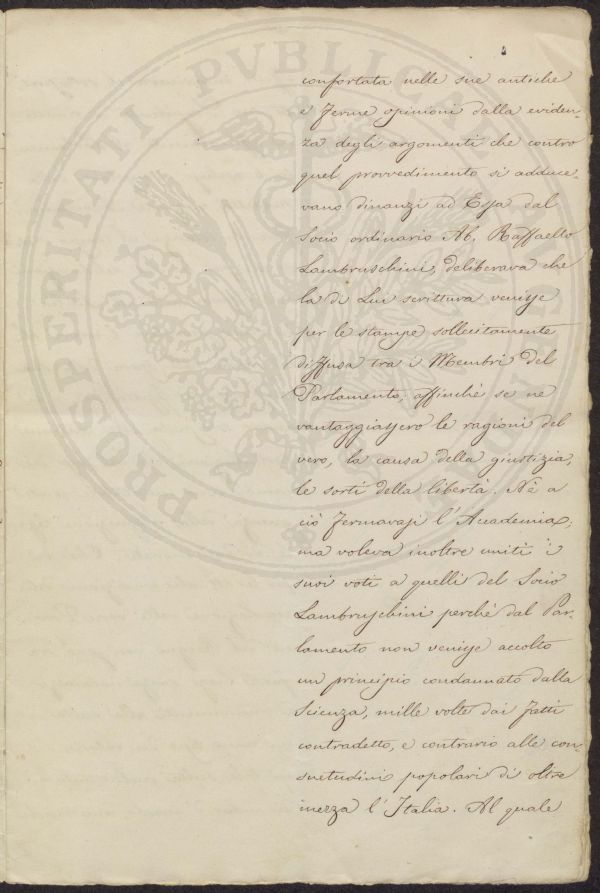 confortata nelle sue antiche
e ferme opinioni dalla eviden-
za degli argomenti che contro
quel provvedimento si adduce-
vano dinanzi ad Essa dal
Socio ordinario Ab. Raffaello
Lambruschini, deliberava che
la di Lui scrittura venisse
per le stampe sollecitamente
diffusa tra i Membri del
Parlamento, affinchè se ne
vantaggiassero le ragioni del
vero, la causa della giustizia,
le sorti della libertà. Nè a
ciò fermavasi l'Accademia;
ma voleva inoltre uniti i
suoi voti a quelli del Socio
Lambruschini perchè dal Par-
lamento non venisse accolto
un principio condannato dalla
Scienza, mille volte dai fatti
contradetto, e contrario alle con-
suetudini popolari di oltre
mezza l'Italia. Al quale
PROSPERITATI PVBLICAE